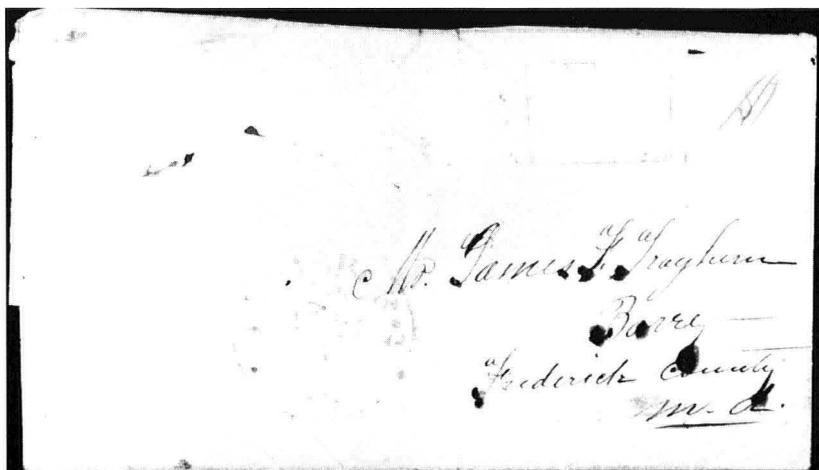 Mr. James F. Trayhern
Barry
Frederick County
M. d.